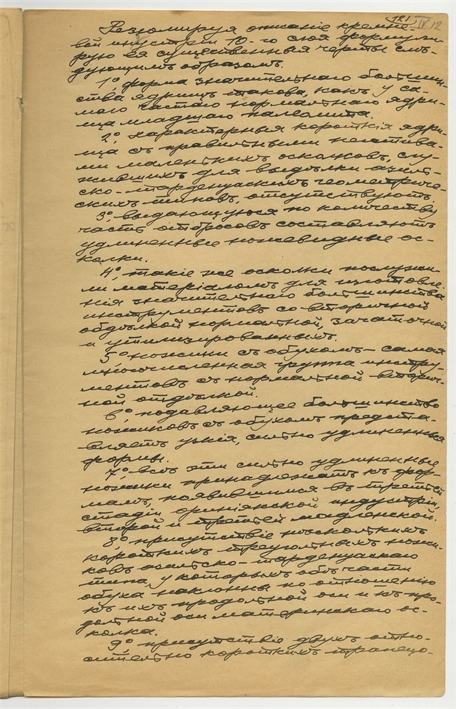 121 IV 12
Резюмируя описаніе кремне-
вой индустріи 10-го слоя формули-
рую ея существенныя черты слѣ-
дующимъ образомъ.
1°, форма значительнаго большин-
ства ядрищъ такова, какъ у са-
маго частаго нормальнаго ядри-
ща младшаго палеолита.
2°, характерныя короткія ядри-
ща съ правильными негатива-
ми маленькихъ осколковъ, слу-
жившихъ для выдѣлки азиль-
ско-тарденуазскихъ геометриче-
скихъ типовъ, отсутствуютъ
3°, выдающуюся по количеству
часть отбросовъ составляютъ
удлиненные ножевидные ос-
колки.
4°, такіе же осколки послужи-
ли матеріаломъ для изготовле-
нія значительнаго большинства
инструментовъ со вторичной
обдѣлкой нормальной, зачаточной
и утилизированныхъ.
5°, ножики съ обухомъ - самая
многочисленная группа инстру-
ментовъ съ нормальной вторич-
ной отдѣлкой.
6°, подавляющее большинство
ножиковъ съ обухомъ предста-
вляетъ узкія, сильно удлиненныя
формы.
7°, всѣ эти сильно удлиненные
ножики принадлежатъ къ фор-
мамъ, появившимся въ третьей
стадіи ориньякской индустріи,
второй и третьей мадленской.
8°, присутствіе нѣсколькихъ
короткихъ треугольныхъ ножи-
ковъ азильско-тарденуазскаго
типа, у которыхъ обѣ части
обуха наклонны по отношенію
къ ихъ продольной оси и къ про-
дольной оси материнскаго ос-
колка.
9°, присутствіе двухъ отно-
сительно короткихъ трапецо-